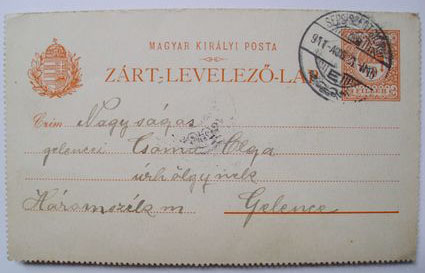 MAGYAR KIRÁLYI POSTA
ZÁRT-LEVELEZŐ-LAP
Czim Nagyságos
gelencei Csoma Olga
úrhölgynek
Háromszék m Gelence